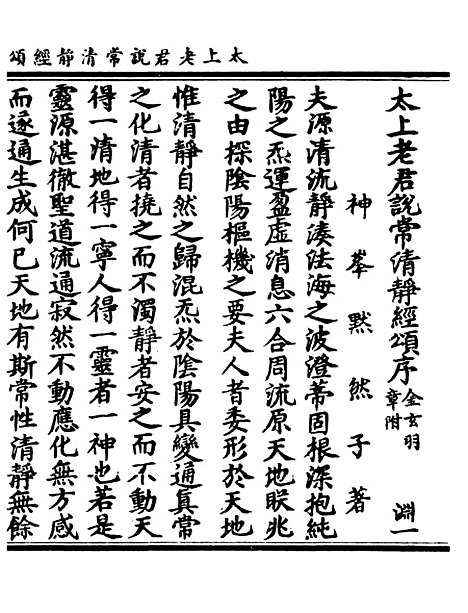 太上老君說常清靜經頌
太上老君說常清靜經頌序 金玄羽章附 淵一
神峯默然子著
夫源清流靜湊法海之波澄蒂固根深抱純
陽之炁運盈虛消息六合周流原天地眹兆
之由探陰陽樞機之要夫人者委形於天地
惟清靜自然之歸混炁於陰陽具變通真常
之化清者撓之而不濁靜者安之而不動天
得一清地得一寧人得一靈者一神也若是
靈源湛徹聖道流通寂然不動應化無方感
而遂通生成何已天地有斯常性清靜無餘